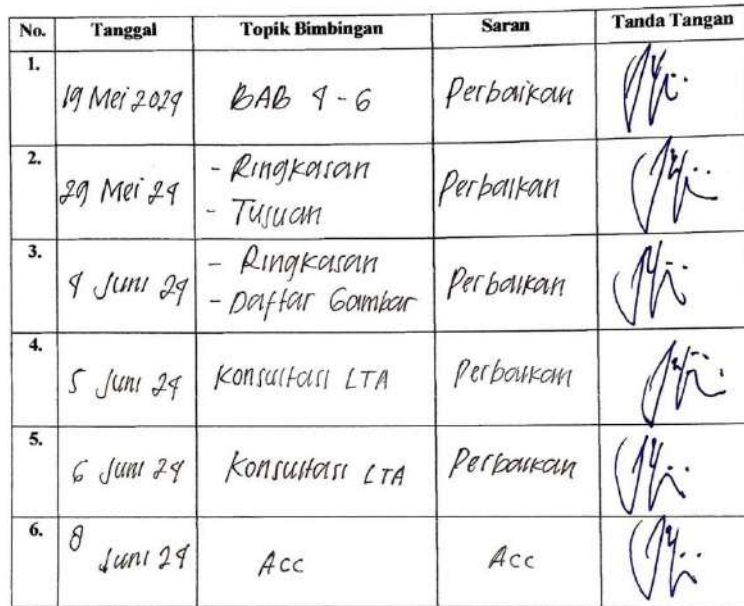 No. Tanggal Topik Bimbingan Saran Tanda Tangan
1. 19 Mei 2024 BAB 4 - 6 Perbaikan
2. 29 Mei 24 - Ringkasan Perbaikan
- Tujuan
3. 4 Juni 24 - Ringkasan Perbaikan
- Daftar Gambar
4. 5 Juni 24 Konsultasi LTA Perbaikan
5. 6 Juni 24 Konsultasi LTA Perbaikan
6. 8 Juni 24 Acc Acc